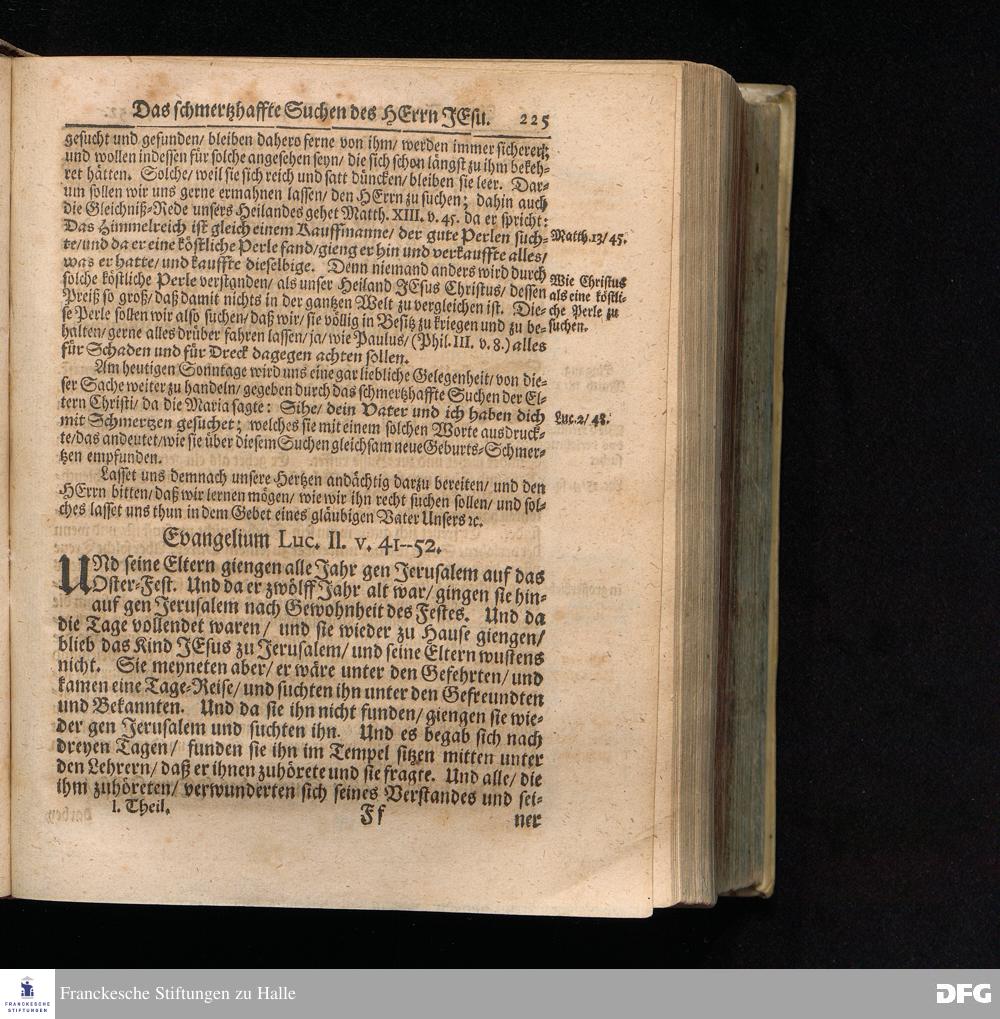 Das schmertzhaffte Suchen des HErrn JEsu. 225
gesucht und gefunden/ bleiben dahero ferne von ihm/ werden immer sicherer/
und wollen indessen für solche angesehen seyn/ die sich schon längst zu ihm bekeh-
ret hätten. Solche/ weil sie sich reich und satt düncken/ bleiben sie leer. Dar-
um sollen wir uns gerne ermahnen lassen/ den HErrn zu suchen; dahin auch
die Gleichniß-Rede unsers Heilandes gehet Matth. XIII. v. 45. da er spricht:
Das Himmelreich ist gleich einem Kauffmanne/ der gute Perlen such-
te/ und da er eine köstliche Perle fand/ gieng er hin und verkauffte alles/
was er hatte/ und kauffte dieselbige. Denn niemand anders wird durch
solche köstliche Perle verstanden/ als unser Heiland JEsus Christus/ dessen
Preiß so groß/ daß damit nichts in der gantzen Welt zu vergleichen ist. Die-
se Perle sollen wir also suchen/ daß wir/ sie völlig in Besitz zu kriegen und zu be-
halten/ gerne alles drüber fahren lassen/ ja/ wie Paulus/ (Phil. III. v. 8.) alles
für Schaden und für Dreck dagegen achten sollen.
Matth. 13/ 45.
Wie Christus
als eine köstli-
che Perle zu
suchen.
Am heutigen Sonntage wird uns eine gar liebliche Gelegenheit/ von die-
ser Sache weiter zu handeln/ gegeben durch das schmertzhaffte Suchen der El-
tern Christi/ da die Maria sagte: Sihe/ dein Vater und ich haben dich
mit Schmertzen gesuchet; welches sie mit einem solchen Worte ausdruck-
te/ das andeutet/ wie sie über diesem Suchen gleichsam neue Geburts-Schmer-
tzen empfunden.
Luc. 2/ 48.
Lasset uns demnach unsere Hertzen andächtig darzu bereiten/ und den
HErrn bitten/ daß wir lernen mögen/ wie wir ihn recht suchen sollen/ und sol-
ches lasset uns thun in dem Gebet eines gläubigen Vater Unsers ꝛc.
Evangelium Luc. II. v. 41--52.
UNd seine Eltern giengen alle Jahr gen Jerusalem auf das
Oster-Fest. Und da er zwölff Jahr alt war/ gingen sie hin-
auf gen Jerusalem nach Gewohnheit des Festes. Und da
die Tage vollendet waren/ und sie wieder zu Hause giengen/
blieb das Kind JEsus zu Jerusalem/ und seine Eltern wustens
nicht. Sie meyneten aber/ er wäre unter den Gefehrten/ und
kamen eine Tage-Reise/ und suchten ihn unter den Gefreundten
und Bekannten. Und da sie ihn nicht funden/ giengen sie wie-
der gen Jerusalem und suchten ihn. Und es begab sich nach
dreyen Tagen/ funden sie ihn im Tempel sitzen mitten unter
den Lehrern/ daß er ihnen zuhörete und sie fragte. Und alle/ die
ihm zuhöreten/ verwunderten sich seines Verstandes und sei-
I. Theil. Ff ner
FRANCKESCHE
STIFTUNGEN
Franckesche Stiftungen zu Halle
DFG